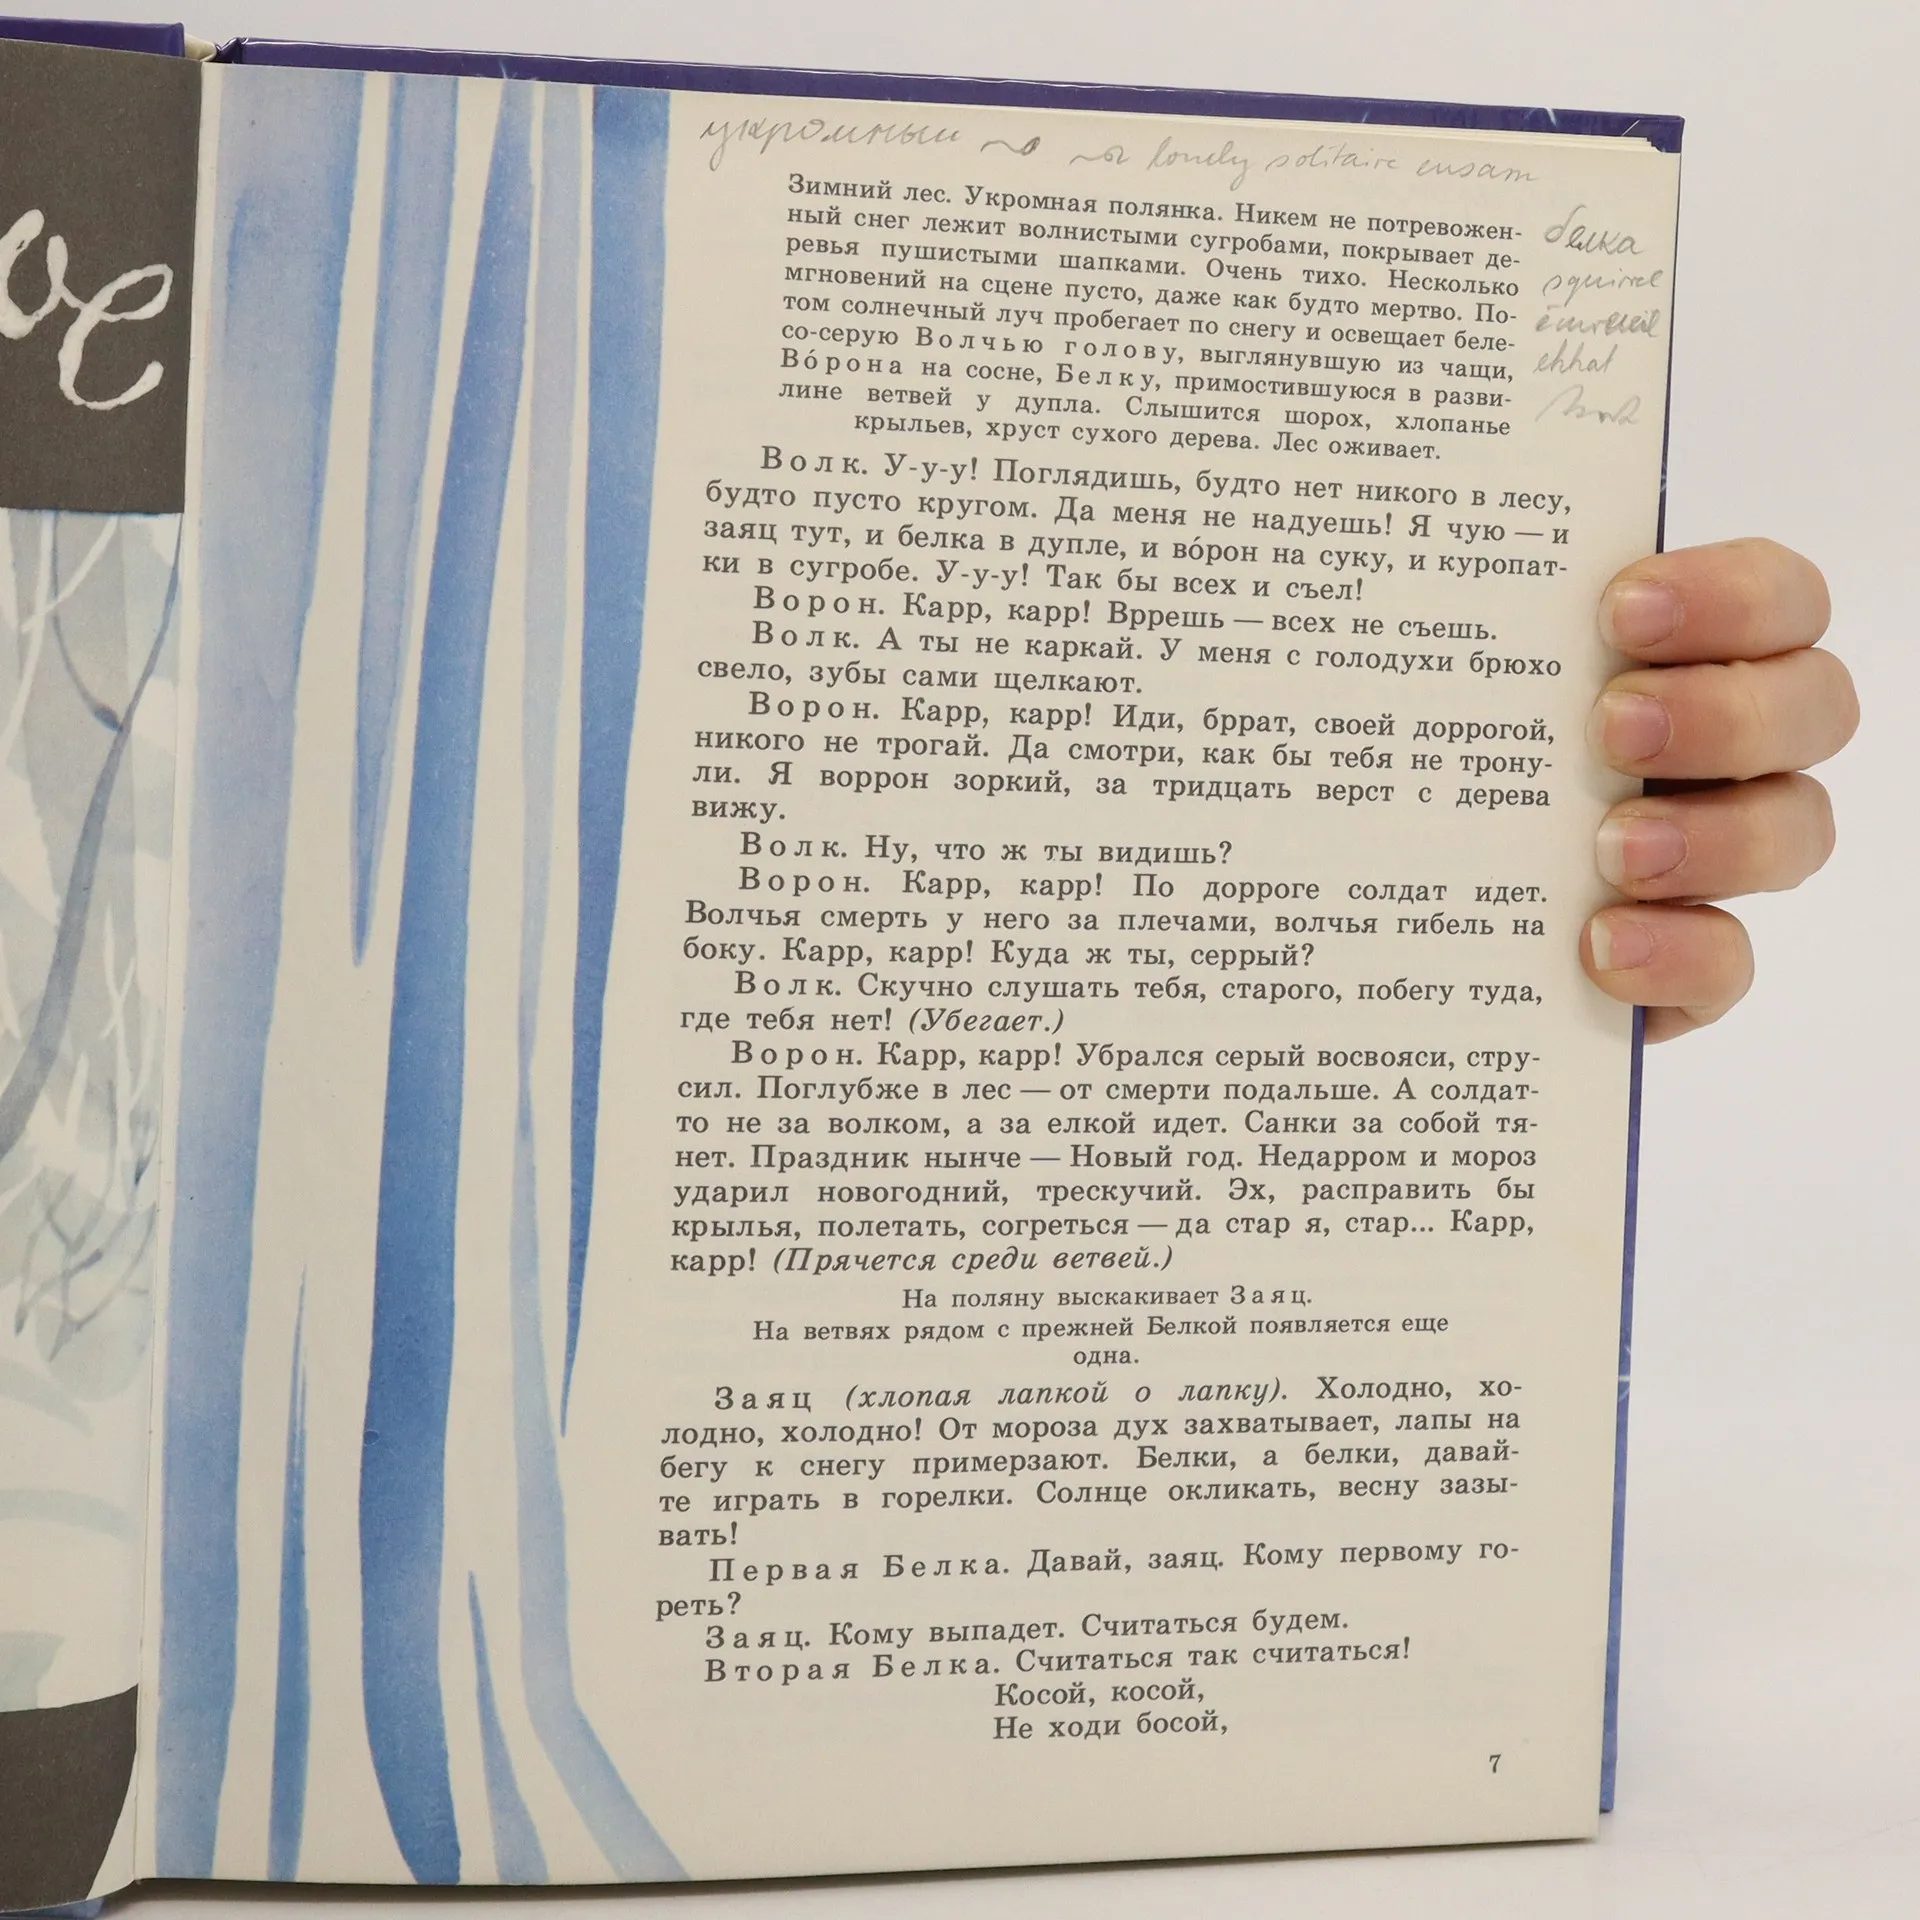 ое
укромный lonely solitaire ensam
Зимний лес. Укромная полянка. Никем не потревожен-
ный снег лежит волнистыми сугробами, покрывает де-
ревья пушистыми шапками. Очень тихо. Несколько
мгновений на сцене пусто, даже как будто мертво. По-
том солнечный луч пробегает по снегу и освещает беле-
со-серую Волчью голову, выглянувшую из чащи,
Во́рона на сосне, Белку, примостившуюся в разви-
лине ветвей у дупла. Слышится шорох, хлопанье
крыльев, хруст сухого дерева. Лес оживает.
белка
squirrel
Волк. У-у-у! Поглядишь, будто нет никого в лесу,
будто пусто кругом. Да меня не надуешь! Я чую — и
заяц тут, и белка в дупле, и во́рон на суку, и куропат-
ки в сугробе. У-у-у! Так бы всех и съел!
Ворон. Карр, карр! Вррешь — всех не съешь.
Волк. А ты не каркай. У меня с голодухи брюхо
свело, зубы сами щелкают.
Ворон. Карр, карр! Иди, бррат, своей доррогой,
никого не трогай. Да смотри, как бы тебя не трону-
ли. Я воррон зоркий, за тридцать верст с дерева
вижу.
Волк. Ну, что ж ты видишь?
Ворон. Карр, карр! По дорроге солдат идет.
Волчья смерть у него за плечами, волчья гибель на
боку. Карр, карр! Куда ж ты, серрый?
Волк. Скучно слушать тебя, старого, побегу туда,
где тебя нет! (Убегает.)
Ворон. Карр, карр! Убрался серый восвояси, стру-
сил. Поглубже в лес — от смерти подальше. А солдат-
то не за волком, а за елкой идет. Санки за собой тя-
нет. Праздник нынче — Новый год. Недарром и мороз
ударил новогодний, трескучий. Эх, расправить бы
крылья, полетать, согреться — да стар я, стар... Карр,
карр! (Прячется среди ветвей.)
На поляну выскакивает Заяц.
На ветвях рядом с прежней Белкой появляется еще
одна.
Заяц (хлопая лапкой о лапку). Холодно, хо-
лодно, холодно! От мороза дух захватывает, лапы на
бегу к снегу примерзают. Белки, а белки, давай-
те играть в горелки. Солнце окликать, весну зазы-
вать!
Первая Белка. Давай, заяц. Кому первому го-
реть?
Заяц. Кому выпадет. Считаться будем.
Вторая Белка. Считаться так считаться!
Косой, косой,
Не ходи босой,
7